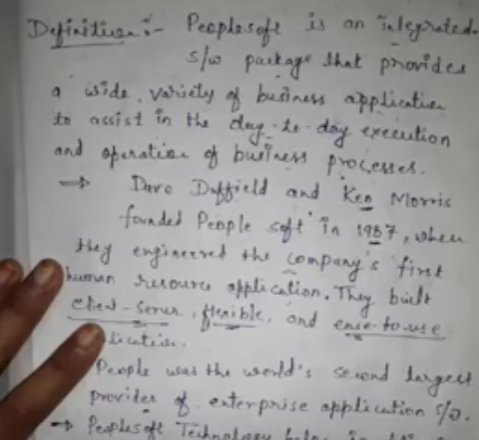 Definition :- Peoplesoft is an integrated
s/w package that provides
a wide variety of business application
to assist in the day-to-day execution
and operation of business processes.
→ Dave Duffield and Ken Morris
founded People soft in 1987, when
they engineered the company's first
human resource application. They built
client-server, flexible, and ease-to-use
People was the world's second largest
provider of enterprise application s/w.
→ Peoplesoft Technology